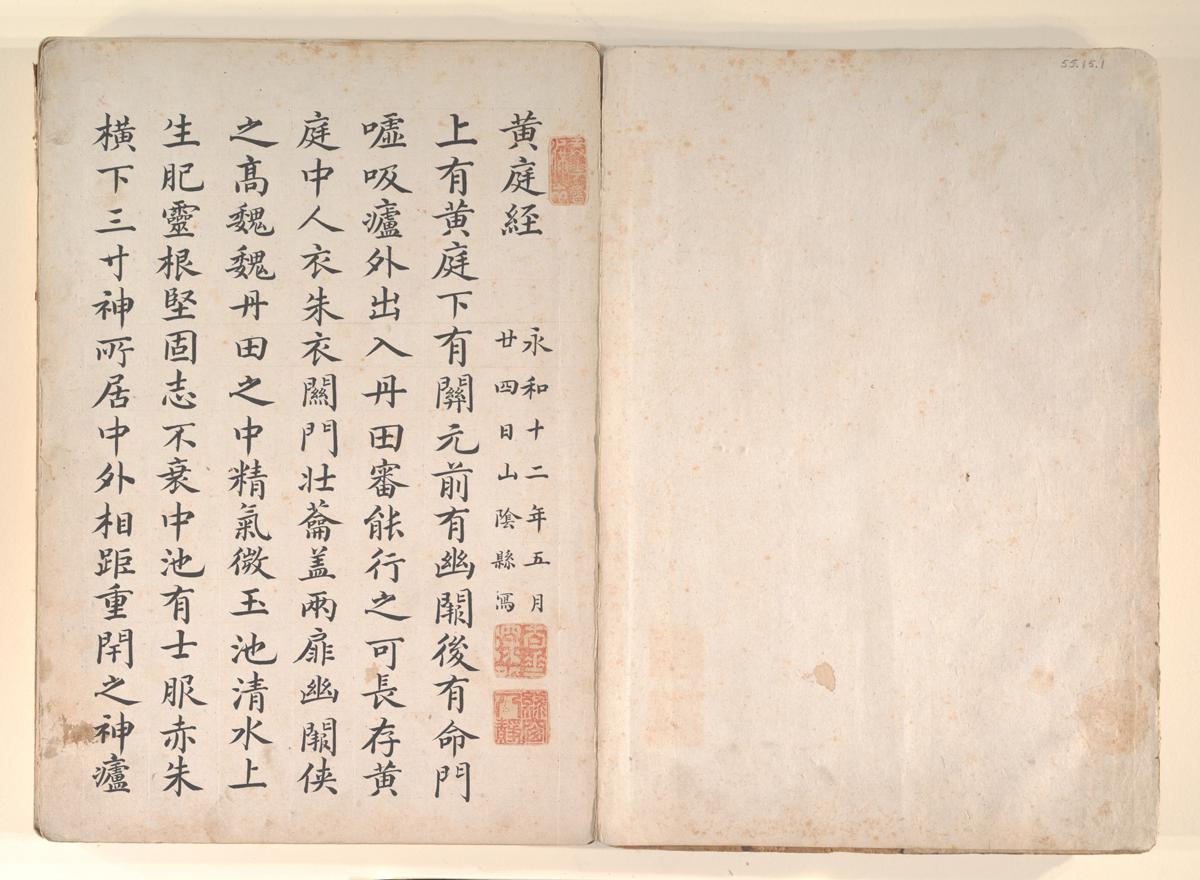 55.15.1
黄庭経
永和十二年五月
廿四日山陰縣寫
上有黄庭下有關元前有幽闕後有命門
噓吸廬外出入丹田審能行之可長存黄
庭中人衣朱衣關門壮蘥盖兩扉幽闕俠
之髙魏魏丹田之中精氣微玉池清水上
生肥靈根堅固志不衰中池有士服赤朱
横下三寸神所居中外相距重閇之神廬